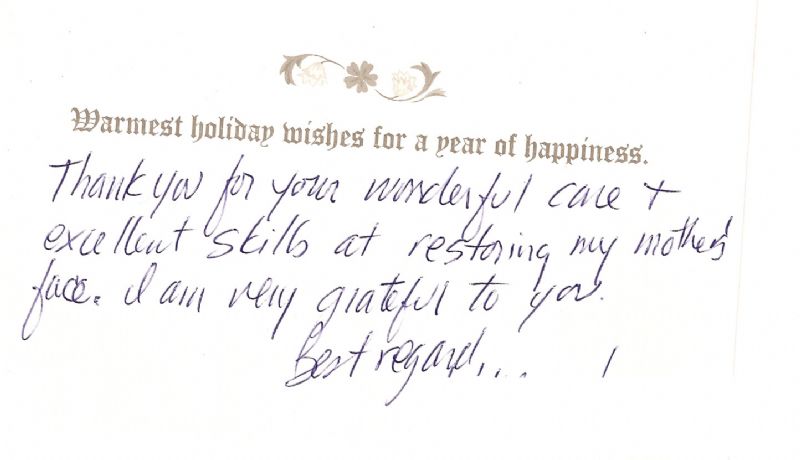 Warmest holiday wishes for a year of happiness.
Thank you for your wonderful care +
excellent skills at restoring my mother's
face. I am very grateful to you.
Best regard...